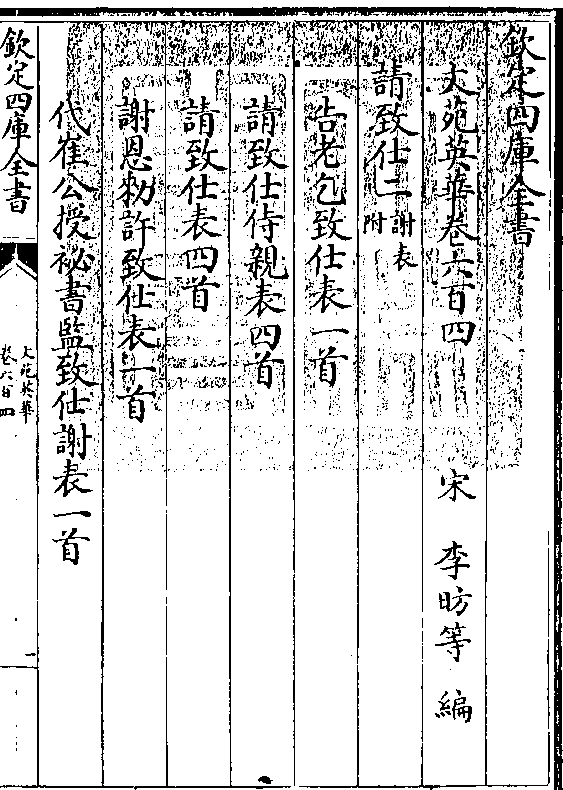 欽定四庫全書
文苑英華卷六百四
宋 李昉等 編
請致仕二 謝表附
告老乞致仕表一首
請致仕侍親表四首
請致仕表四首
謝恩勑許致仕表一首
代崔公授祕書監致仕謝表一首
欽定四庫全書
文苑英華
卷六百四
一